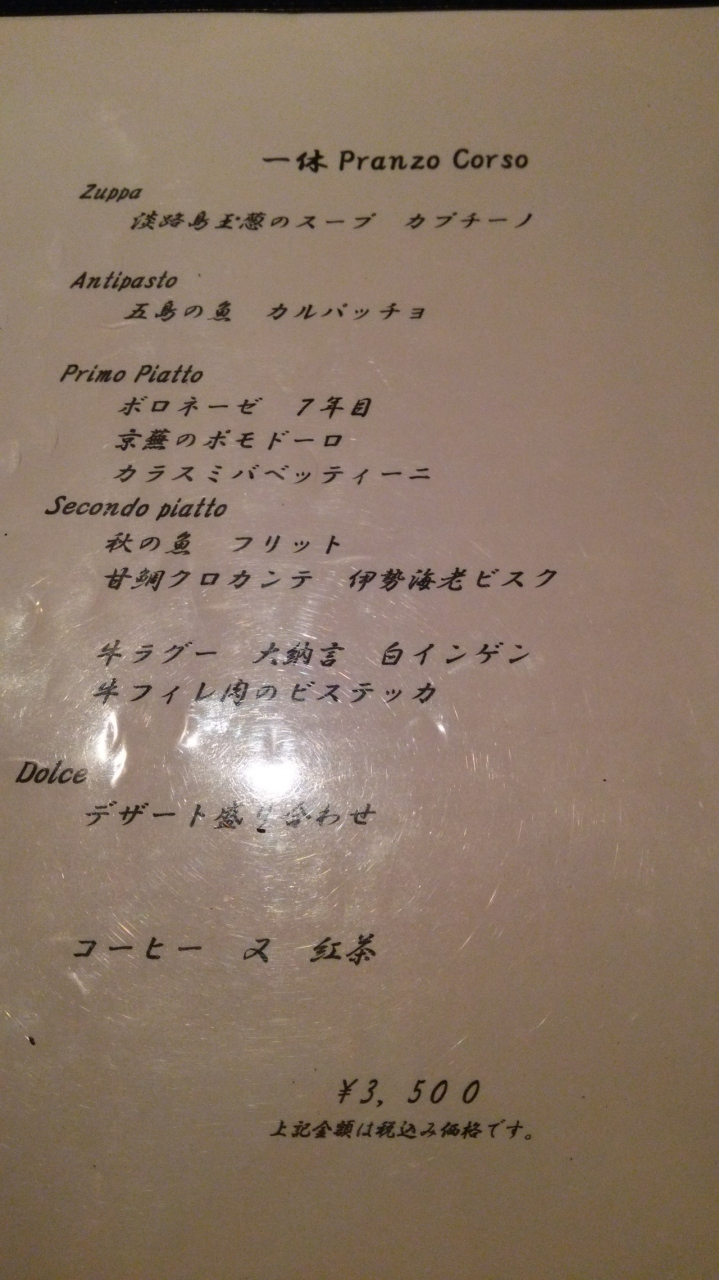 一休 Pranzo Corso
Zuppa
淡路島玉葱のスープ　カプチーノ
Antipasto
五島の魚　カルパッチョ
Primo Piatto
ボロネーゼ　7年目
京蕪のポモドーロ
カラスミバベッティーニ
Secondo piatto
秋の魚　フリット
甘鯛クロカンテ　伊勢海老ビスク
牛ラグー　大納言　白インゲン
牛フィレ肉のビステッカ
Dolce
デザート盛り合わせ
コーヒー　又　紅茶
¥3, 500
上記金額は税込み価格です。